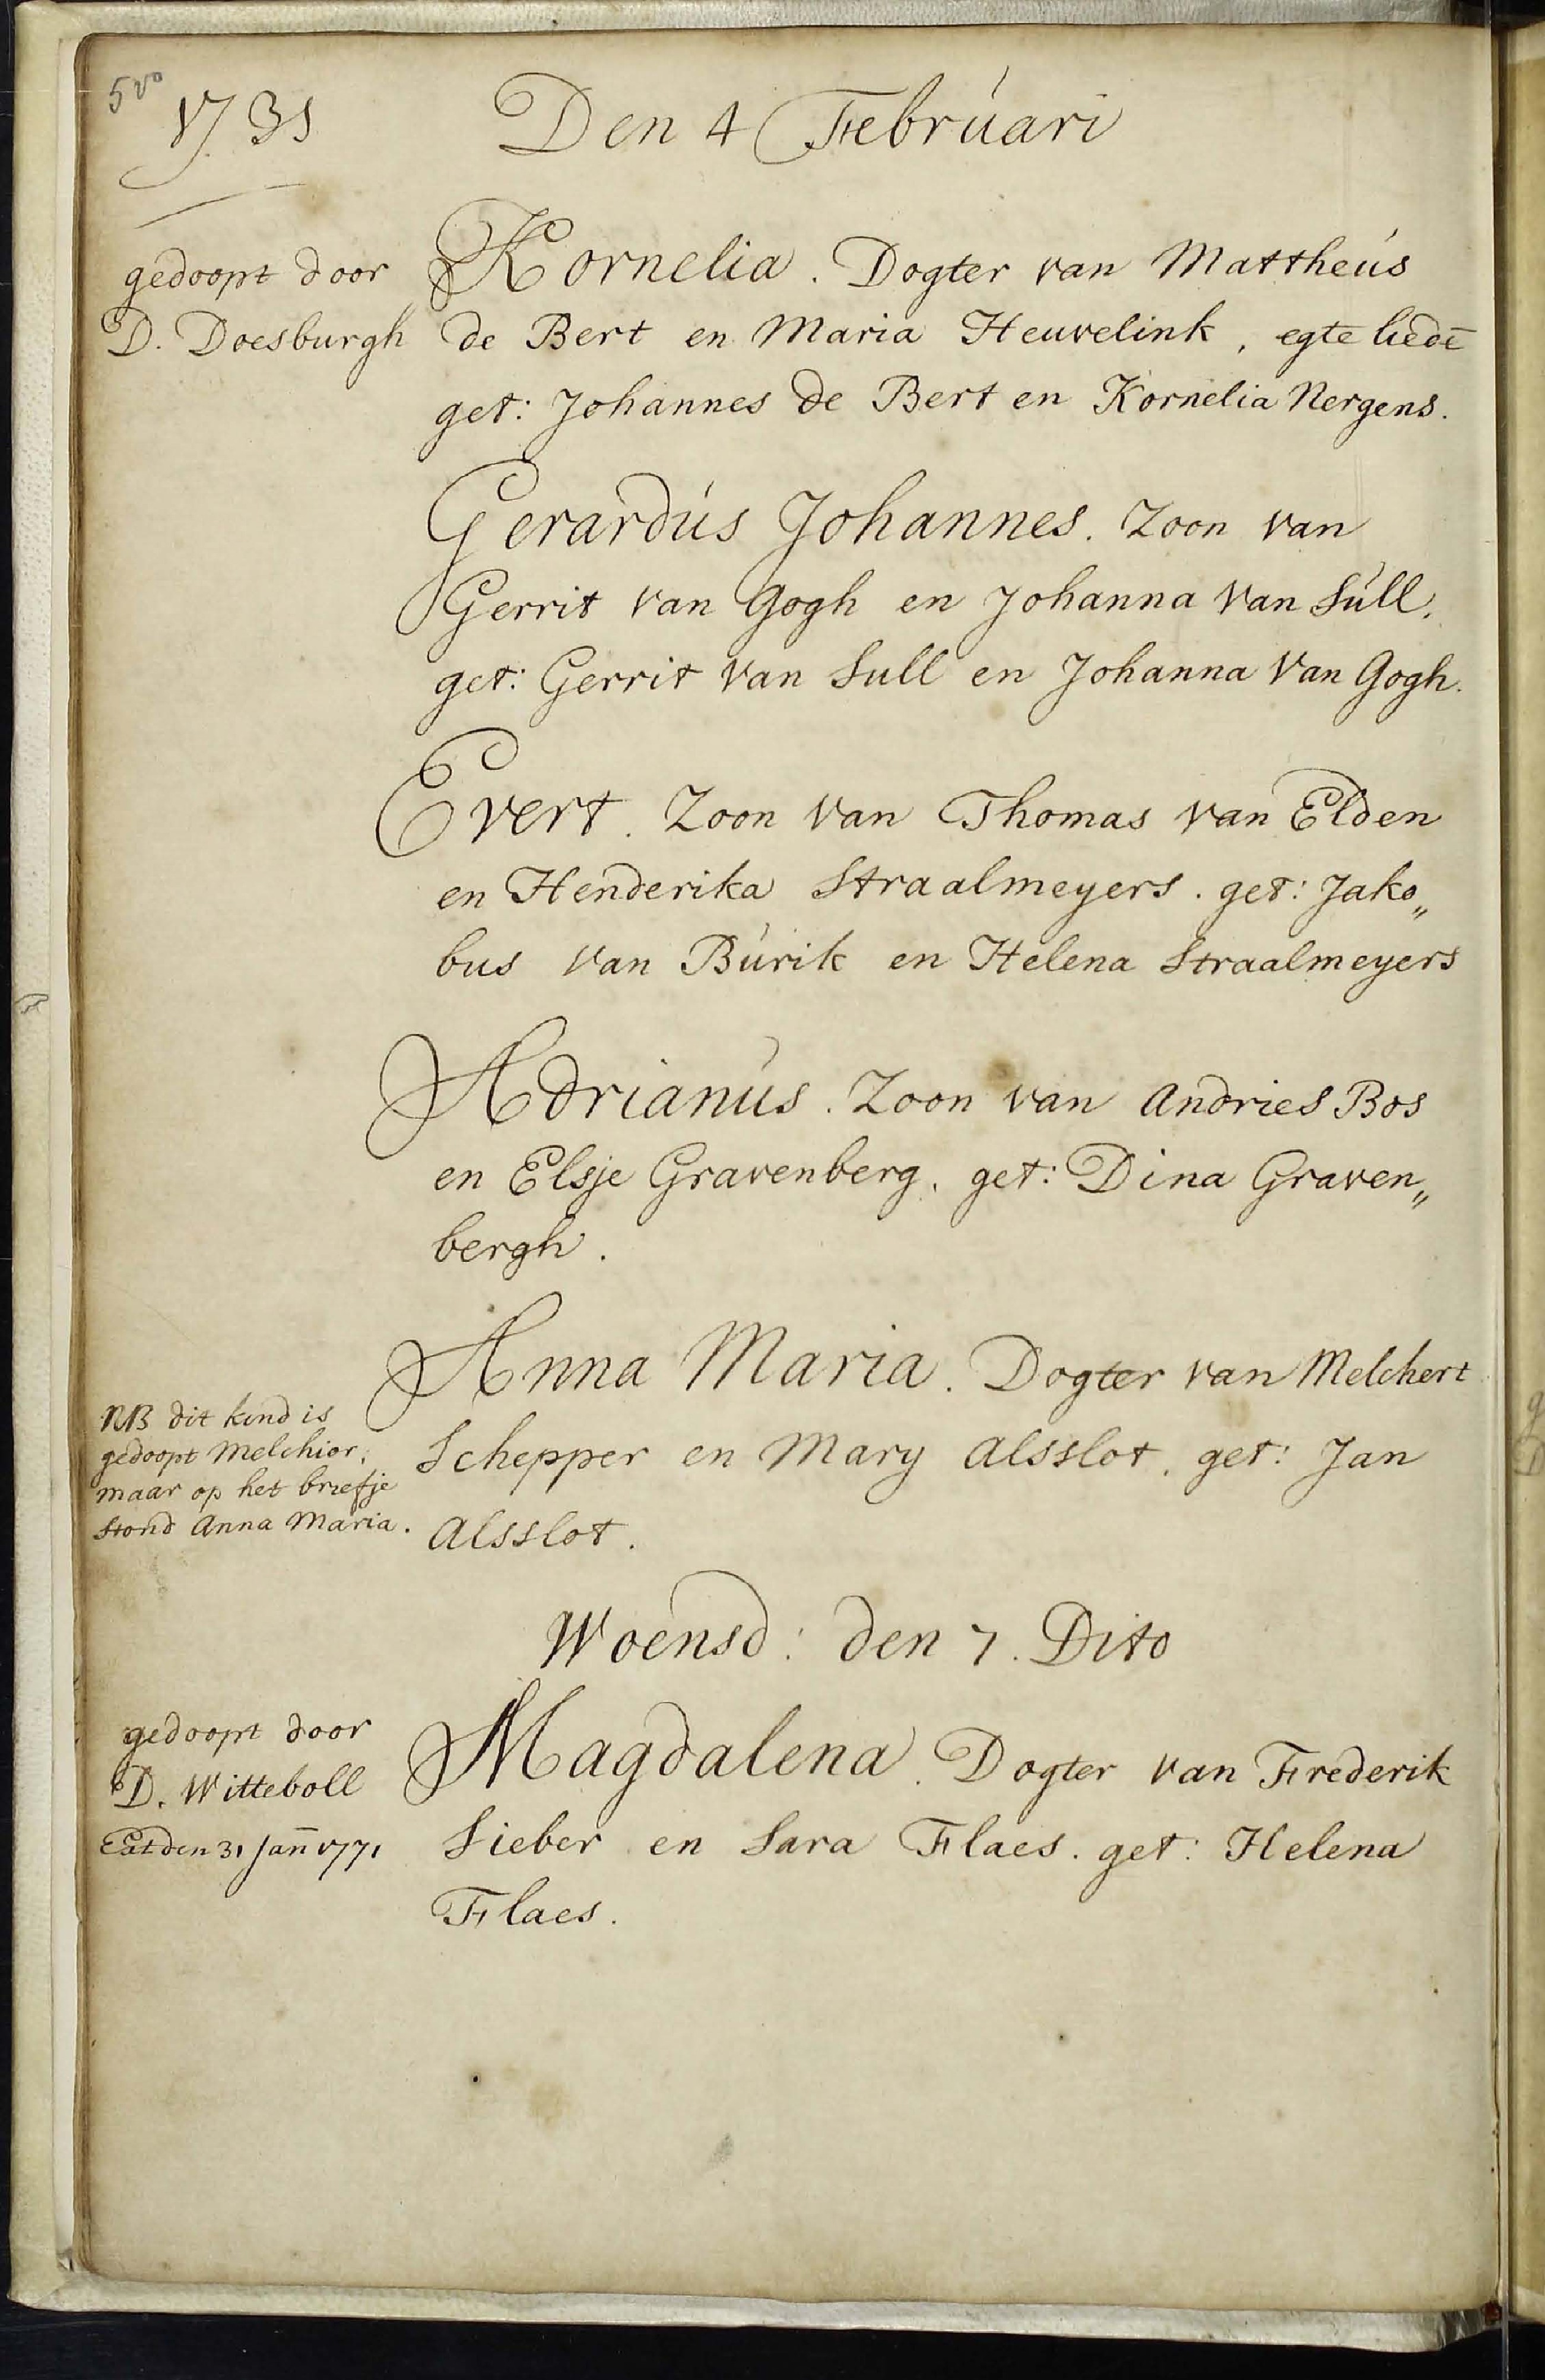 5vo
1731 Den 4 Februari
gedoopt door
D. Doesburgh
Kornelia. Dogter van Mattheus
de Bert en Maria Heuvelink, egte liedē
get: Johannes de Bert en Kornelia Nergens.
Gerardus Johannes. Zoon van
Gerrit van Gogh en Johanna van Sull.
get: Gerrit van Sull en Johanna van Gogh.
Evert. Zoon van Thomas van Elden
en Henderika Straalmeyers. get: Jako„
bus van Burik en Helena Straalmeyers
Adrianus. Zoon van Andries Bos
en Elsje Gravenberg. get: Dina Graven„
bergh.
Anna Maria. Dogter van Melchert
Schepper en Mary Alsslot. get: Jan
Alsslot.
NB dit kind is
gedoopt Melchior;
maar op het briefje
stond Anna Maria.
Woensd: den 7. Dito
gedoopt door
D. Witteboll
Magdalena. Dogter van Frederik
Sieber en Sara Flaes. get: Helena
Flaes.
den 31 Jan̄ 1771